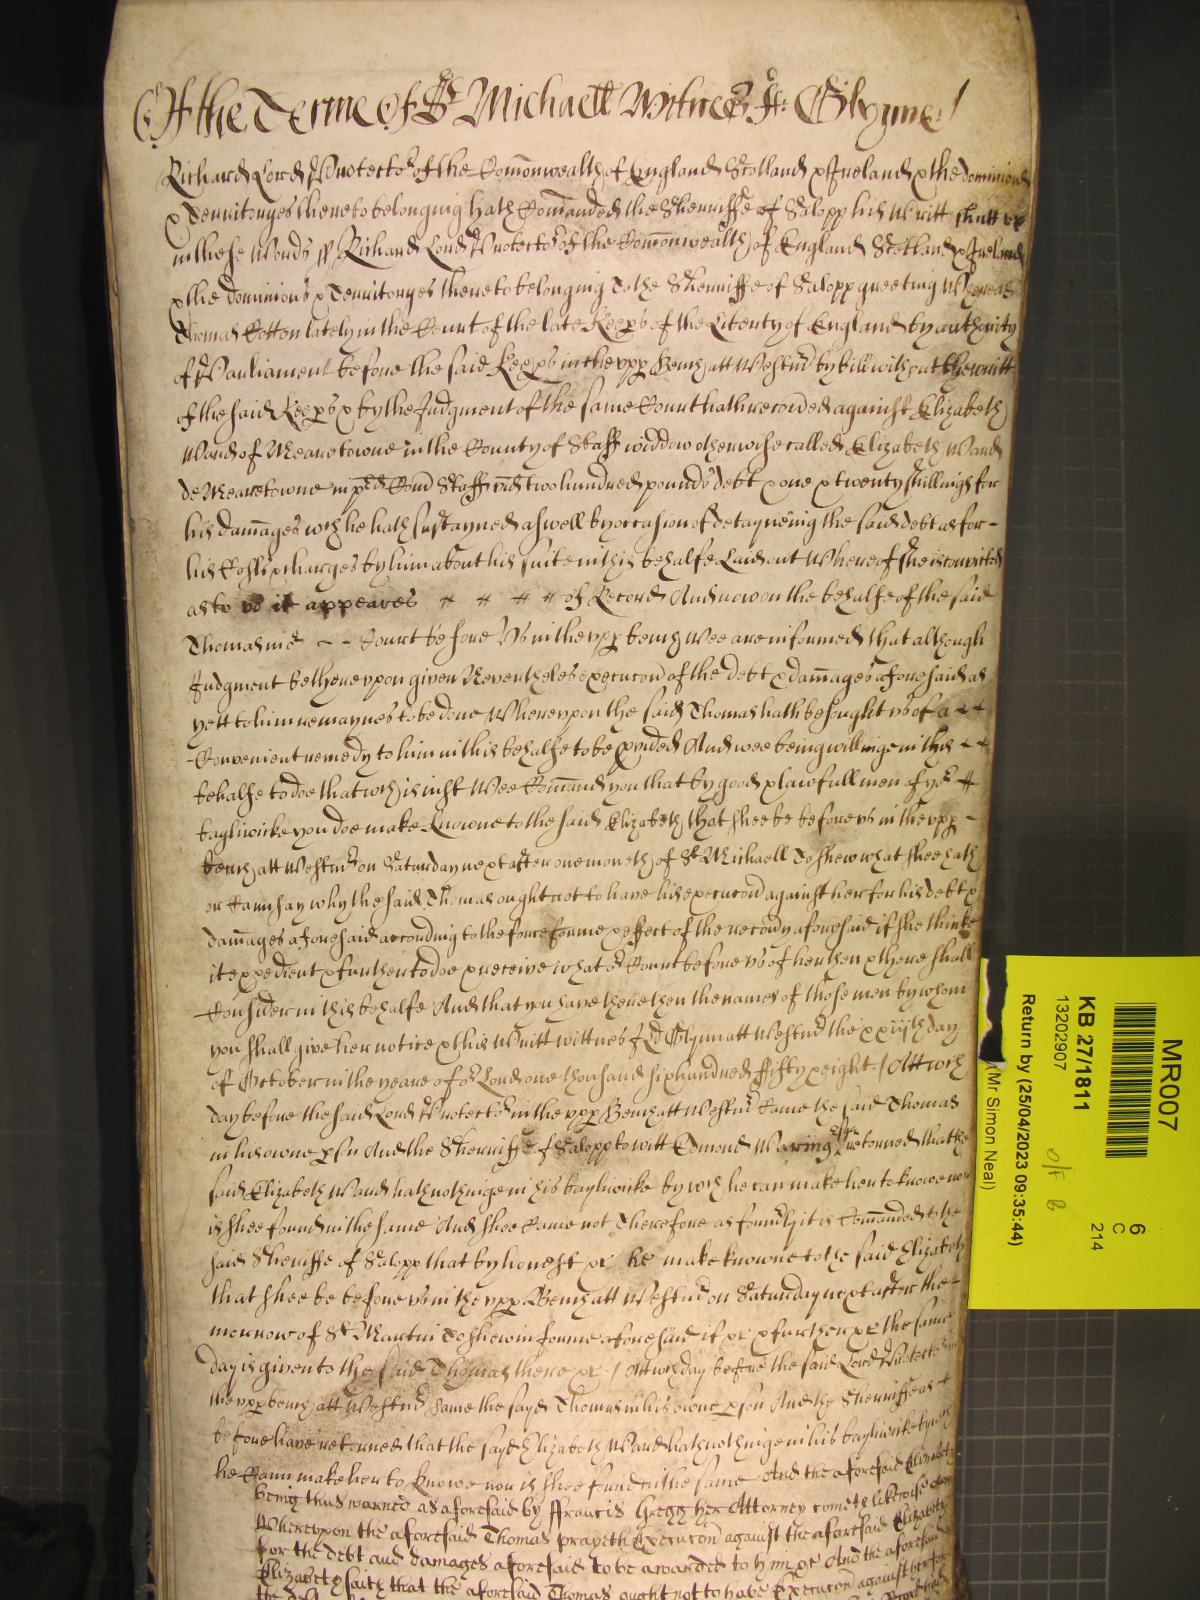 Of the Terme of St Michaell Witnes Jo: Glynne /
Richard Lord Protector of the Comonwealth of England Scotland & Ireland & the dominions
& Territoryes thereto belonging hath Comanded the Sherriffe of Salopp his Writt shutt vp
in these Words ss Richard Lord Protector of the Comonwealth of England Scotland & Ireland
& the dominions & Territoryes thereto belonging To the Sherriffe of Salopp greeting Whereas
Thomas Cotton lately in the Court of the late Keepers of the Liberty of England by authority
of Parliament before the said Keepers in the vpp Bench att Westmr by bill without the writt
of the said Keepers & by the Judgment of the same Court hath recovered against Elizabeth
Ward of Mearetowne in the County of Staff widdow otherwise called Elizabeth Ward
de Mearetowne in pred Com Staff vid two hundred pounds debt & one & twenty shillings for
his damages wch he hath sustayned aswell by occasion of detayneing the said debt as for -
his Costs & charges by him about his suite in this behalfe Laid out Whereof she is convicted
as to vs it appeares of Record And now on the behalfe of the said
Thomas in or - - Court before Vs in the vpp bench Wee are informed that although
Judgment be therevpon given Nevertheles execucon of the debt & damages aforesaid as
yett to him remaynes to be done Wherevpon the said Thomas hath besought vs of a
Convenient remedy to him in this behalfe to be pvided And wee being willinge in this
behalfe to doe that wch is iust Wee Comand you that by good & lawfull men of yor
bayliwicke you doe make Knowne to the said Elizabeth that shee be before vs in the vpp -
bench att Westmr on Saturday next after one moneth of St Michaell To shew what shee hath
or Cann say why the said Thomas ought not to have his execucon against her for his debt &
damages aforesaid according to the force forme & effect of the recovery aforesaid if she thinke
it expedient & further to doe & receive what or Court before vs of her then & there shall
Consider in this behalfe And that you have there then the names of those men by whom
you shall give her notice & this Writt wittnes Jo Glynn att Westmr the xxiijth day
of October in the yeare of or Lord one thousand six hundred fifty & eight. / Att wch
day before the said Lord Protector in the vpp Bench att Westmr Came the said Thomas
in his owne pson And the Sherriffe of Salopp to witt Edmond Waring Esqr retorned that the
said Elizabeth Ward hath nothinge in his bayliwicke by wch he can make her to knowe nor
is shee found in the same And shee Came not Therefore as formerly it is Comanded to the
said Sherriffe of Salopp that by honest &c he make knowne to the said Elizabeth
that shee be before vs in the vpp Bench att Westmr on Saturday next after the
morrow of St Martin To shew in forme aforesaid if &c & further &c the same
day is given to the said Thomas there &c / Att wch day before the said Lord Protector in
the vpp bench att Westmr Came the sayd Thomas in his owne pson And the Sherriffe as
before have retorned that the sayd Elizabeth Ward hath nothinge in his bayliwicke by wch
he Cann make her to Knowe nor is shee found in the same And the aforesaid Elizabeth
being thus warned as aforesaid by Francis Gregg her Attorney cometh likewise
Wherevpon the aforesaid Thomas prayeth Execucon against the aforesaid Elizabeth
for the debt and damages aforesaid to be awarded to him &c And the aforesaid
Elizabeth saith that the aforesaid Thomas ought not to have Execucon against her for
the debt
MR007
6
C
214
KB 27/1811
13202907
O/F B
Return by (25/04/2023 09:35:44)
(Mr Simon Neal)